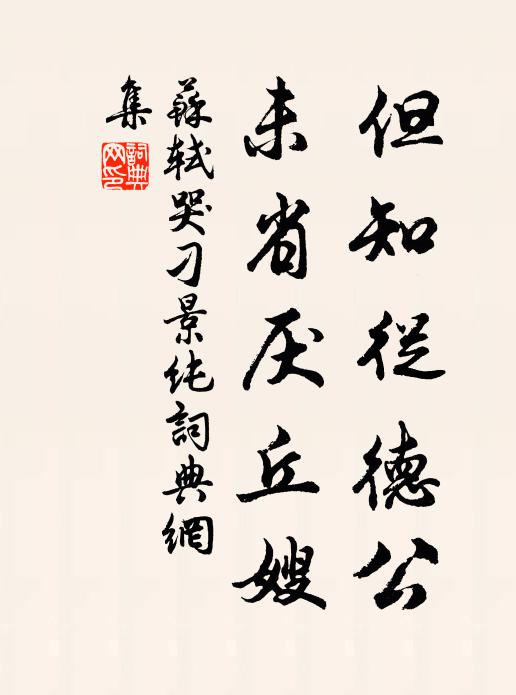 但知從德公
未省厌丘嫂
蘇軾哭刁景純詞典網
集
詞典網印